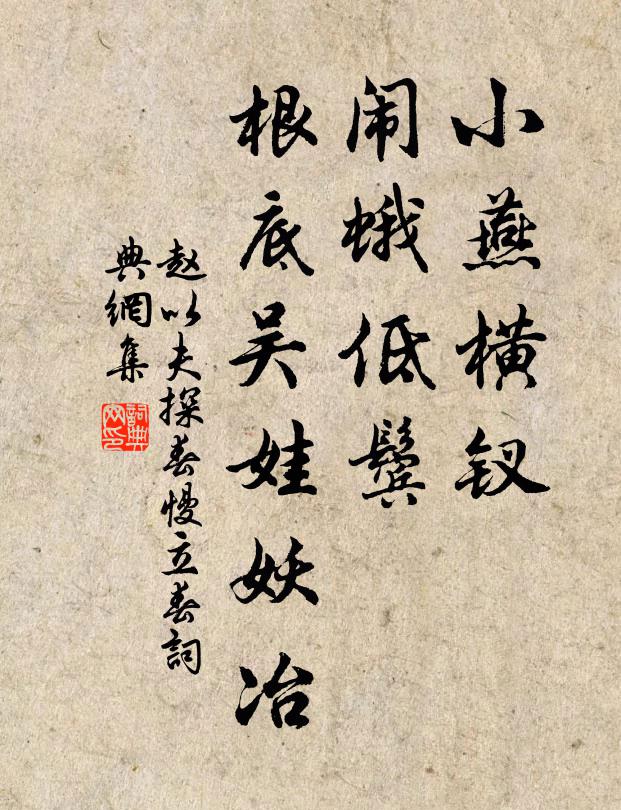 小燕横钗
闹蛾低鬓
根底吴娃妖冶
赵以夫探春慢立春詞
典網集
詞典網印